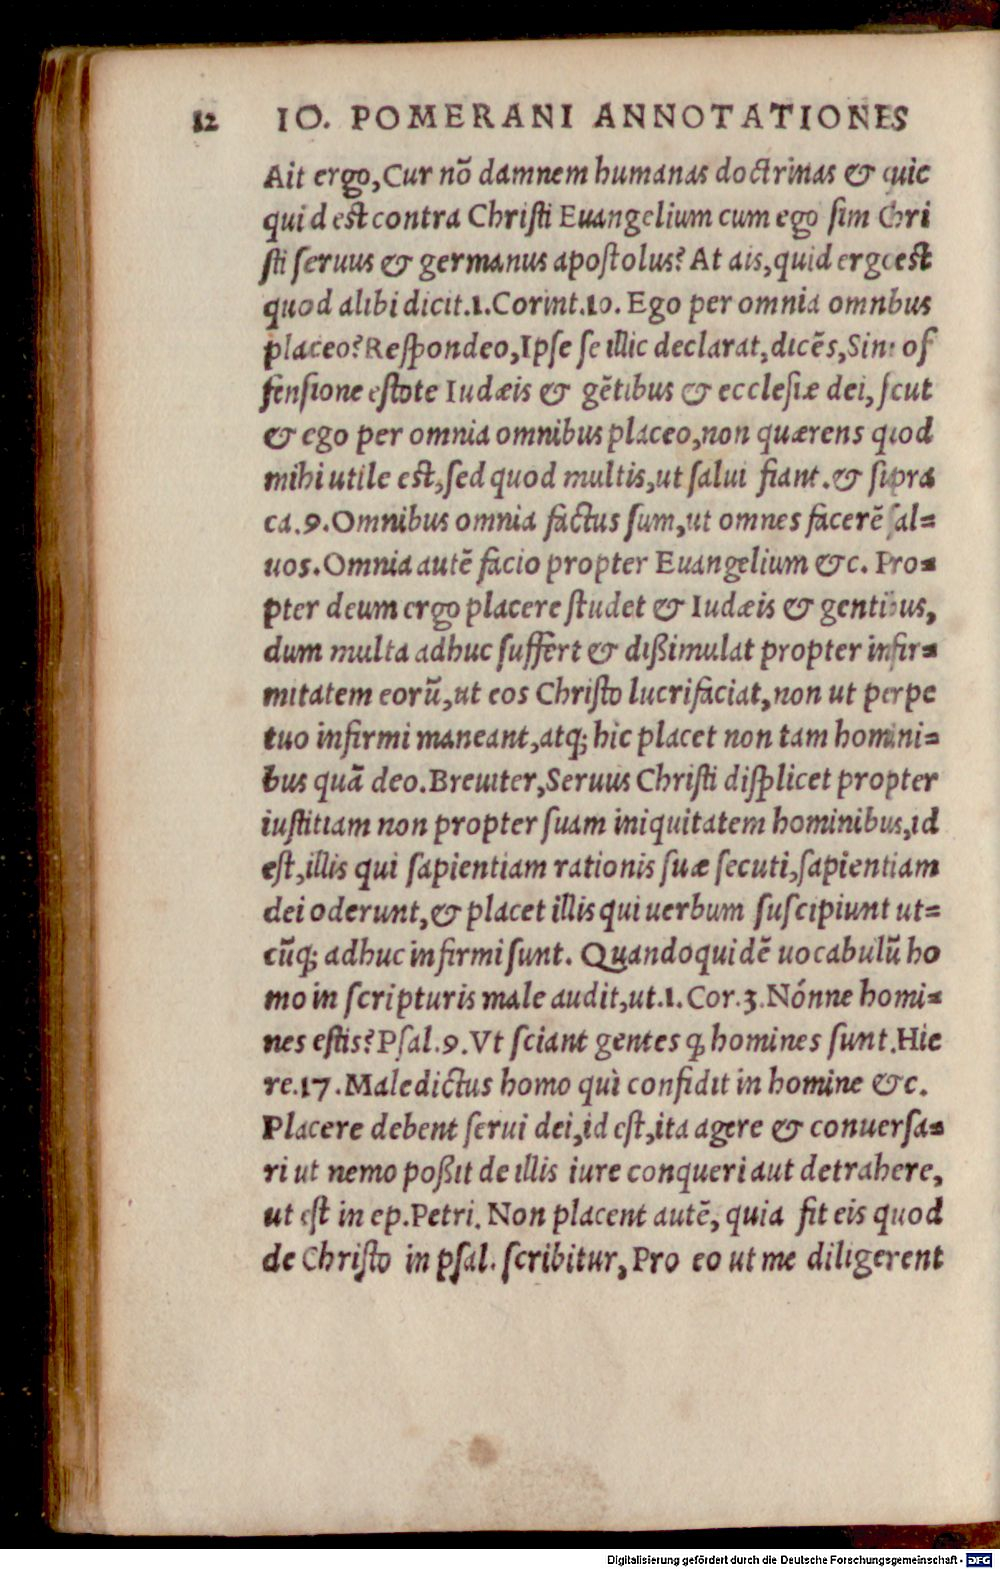 12 IO. POMERANI ANNOTATIONES
Ait ergo, Cur nō damnem humanas doctrinas & quic
quid est contra Christi Euangelium cum ego sim Chri
sti seruus & germanus apostolus? At ais, quid ergo est
quod alibi dicit.1.Corint.10. Ego per omnia omnibus
placeo? Respondeo, Ipse se illic declarat, dicēs, Sine of
fensione estote Iudæis & gētibus & ecclesiæ dei, sicut
& ego per omnia omnibus placeo, non quærens quod
mihi utile est, sed quod multis, ut salui fiant. & supra
ca.9. Omnibus omnia factus sum, ut omnes facerē sal=
uos. Omnia autē facio propter Euangelium &c. Pro=
pter deum ergo placere studet & Iudæis & gentibus,
dum multa adhuc suffert & dißimulat propter infir=
mitatem eorū, ut eos Christo lucrifaciat, non ut perpe
tuo infirmi maneant, atq; hic placet non tam homini=
bus quā deo. Breuiter, Seruus Christi displicet propter
iustitiam non propter suam iniquitatem hominibus, id
est, illis qui sapientiam rationis suæ secuti, sapientiam
dei oderunt, & placet illis qui uerbum suscipiunt ut=
cūq; adhuc infirmi sunt. Quandoquidē uocabulū ho
mo in scripturis male audit, ut.1. Cor.3. Nónne homi=
nes estis? Psal.9. Vt sciant gentes ꝙ homines sunt. Hie
re.17. Maledictus homo qui confidit in homine &c.
Placere debent serui dei, id est, ita agere & conuersa=
ri ut nemo poßit de illis iure conqueri aut detrahere,
ut est in ep. Petri. Non placent autē, quia fit eis quod
de Christo in psal. scribitur, Pro eo ut me diligerent
Digitalisierung gefördert durch die Deutsche Forschungsgemeinschaft - DFG